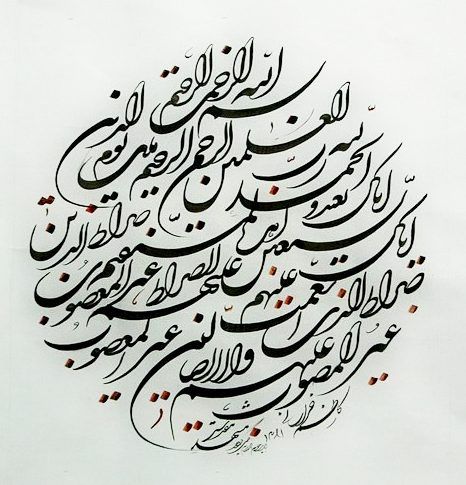 بسم الله الرحمن الرحیم
الحمد لله رب العلمین الرحمن الرحیم ملک یوم الدین
ایاک نعبد و ایاک نستعین اهدنا الصراط المستقیم صراط الذین
صراط الذین انعمت علیهم غیر المغضوب
غیر المغضوب علیهم ولا الضالین
کاظم خراسانی
مشهد مقدس